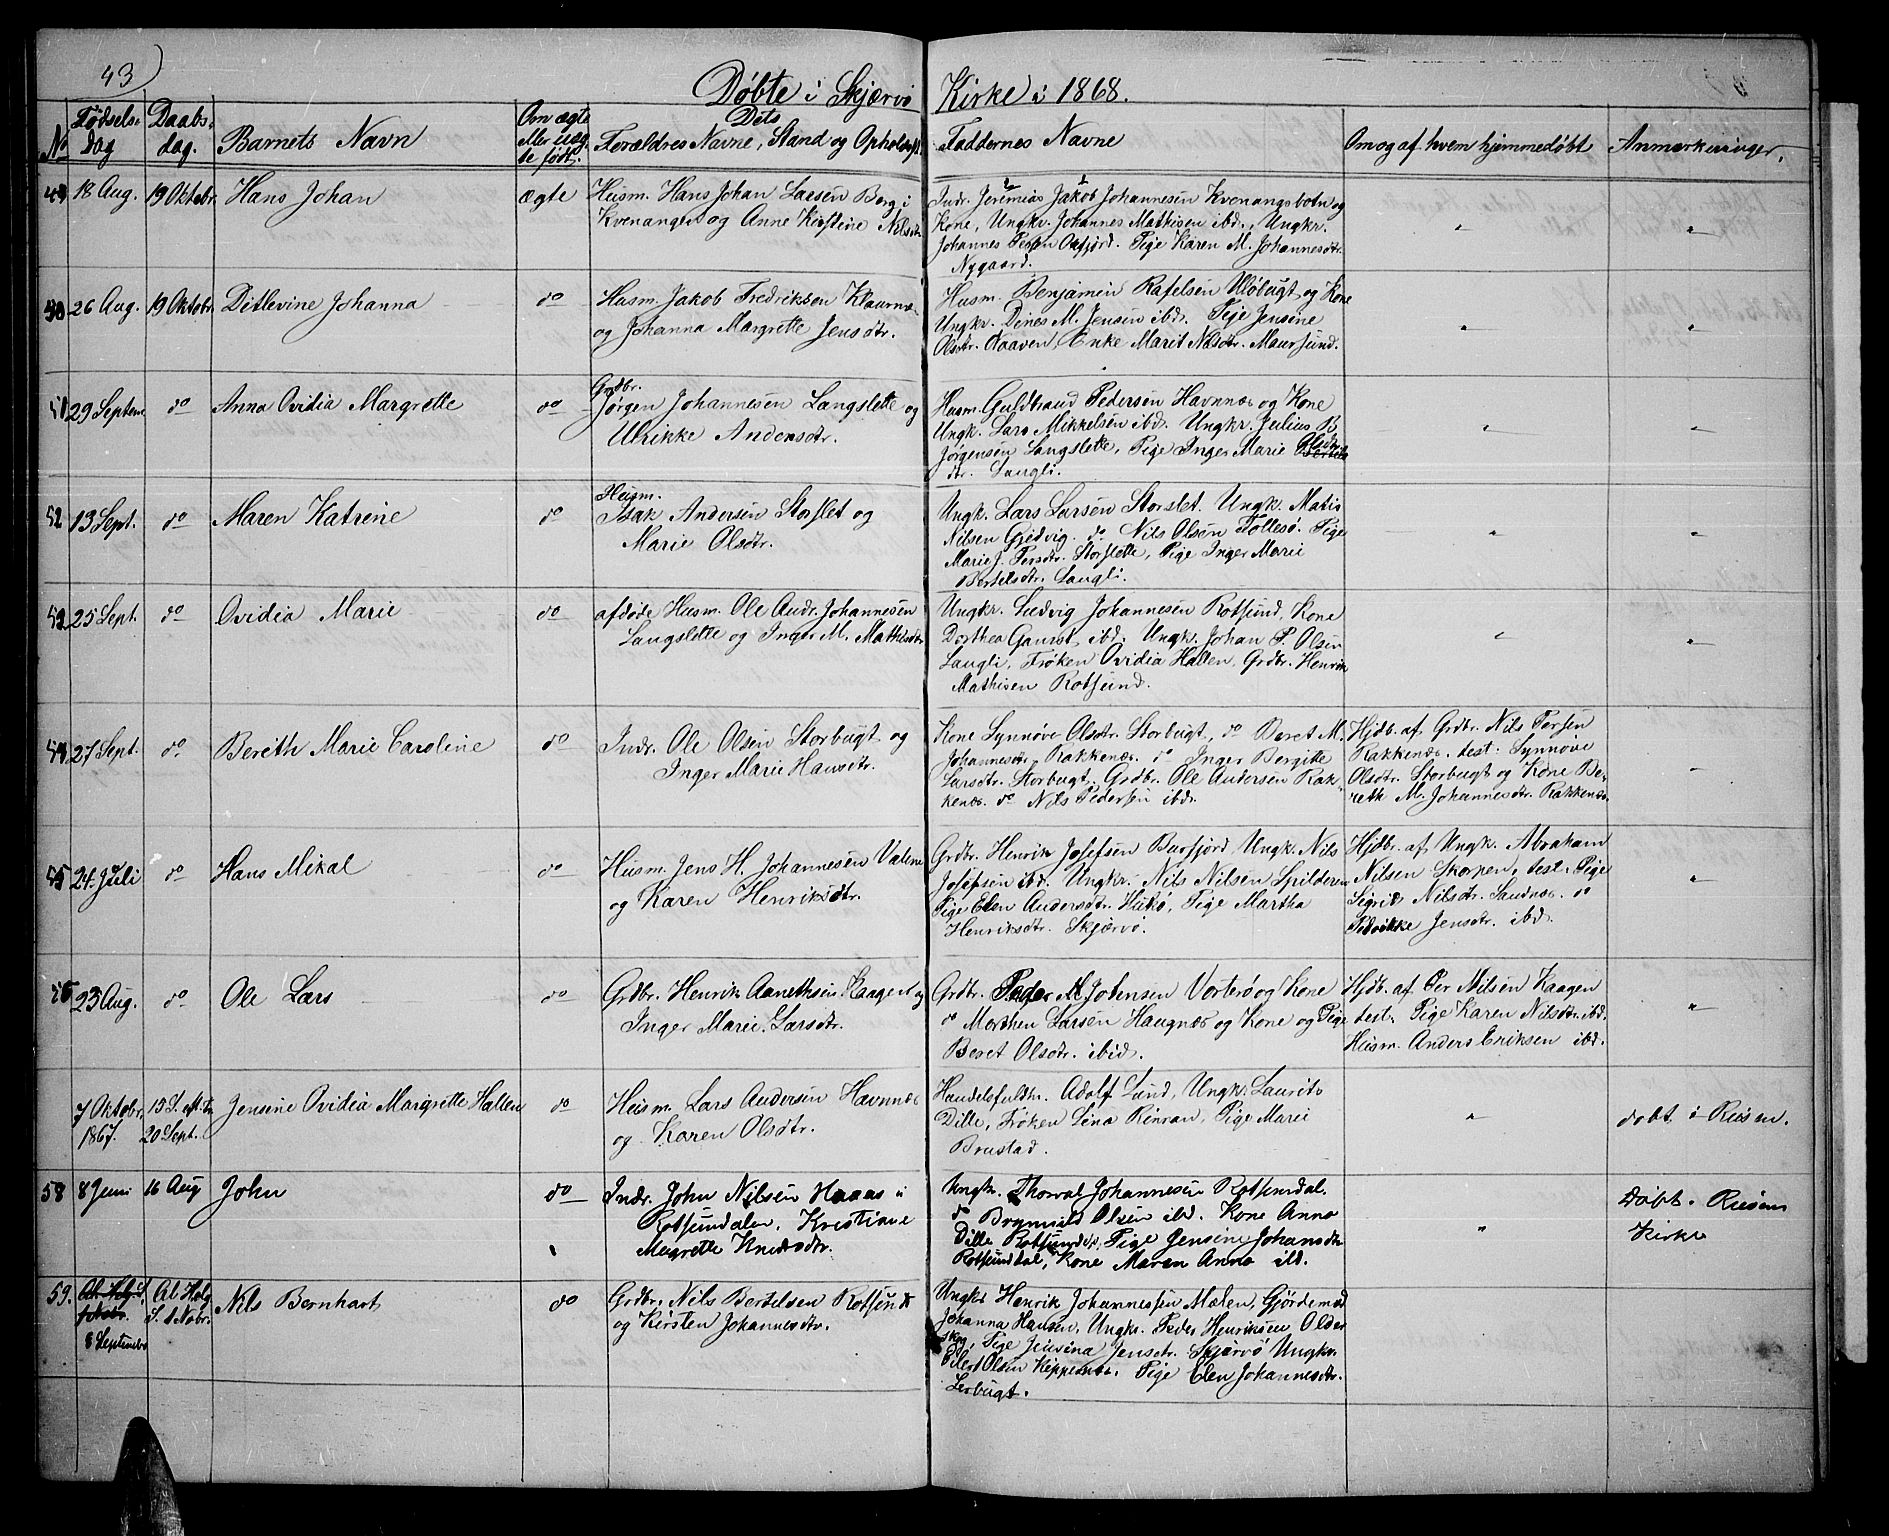 43)
Døbte i Skjærvø Kirke i 1868.
No
Fødsels-
dag
Daabs-
dag.
Barnets Navn
Om ægte
eller uæg-
te født.
Dets
Forældres Navne, Stand og Opholdsst.
Faddernes Navne
Om og af hvem hjemmedøbt
Anmærkninger.
49 18 Aug. 19 Oktobr. Hans Johan
ægte
Husm. Hans Johan Larsen Borg i
Kvenangen og Anne Kirstine Nilsdtr.
Indr. Jeremias Jakob Johannesen Kvenangsbotn og
Kone, Ungkr. Johannes Mathisen ibd., Ungkr.
Johannes Persen Oxfjord. Pige Karen M. Johannesdtr.
Nygaard.
"
"
50 26 Aug. 19 Oktobr. Ditlevine Johanna
do
Husm. Jakob Fredriksen Klauvnæs
og Johanna Margrette Jensdtr.
Husm. Benjamin Rafelsen Uløbugt og Kone
Ungkr. Dines M. Jensen ibdr. Pige Jensine
Olsdtr. Aaaven, Enke Marit Nilsdtr. Maursund.
"
"
51 29 Septem. do Anna Ovidia Margrette
do
Grdbr.
Jørgen Johannesen Langslette og
Ulrikke Andersdtr.
Husm. Guldbrand Pedersen Havnnæs og Kone
Ungk. Lars Mikkelsen ibd. Ungkr. Julius B.
Jørgensen Langslette, Pige Inger Marie Olsdtr.
dtr. Langli.
"
"
52 13 Sept. do Maren Katrine
do
Husm.
Isak Andersen Storslet og
Marie Olsdtr.
Ungk. Lars Larsen Storslet. Ungk. Matis
Nilsen Gjøvig. do Nils Olsen Follesø. Pige
Marie J. Persdtr. Storslette, Pige Inger Marie
Bertelsdtr. Langli.
"
"
53 25 Sept. do Ovidia Marie
do
afdøde Husm. Ole Andr. Johannesen
Langslette og Inger M. Mathisdtr.
Ungkr. Ludvig Johannesen Rotsund, Kone
Dorthea Gaurst, ibd. Ungk. Johan P. Olsen
Langli, Frøken Ovidia Hallen, Grdbr. Henrik
Mathisen Rotsund.
"
"
54 27 Sept. do Bereth Marie Caroline
do
Indr. Ole Olsen Storbugt og
Inger Marie Hansdtr.
Kone Synnøve Olsdtr. Storbugt, do Beret M.
Johannesdtr. Rakkenæs. do Inger Bergitte
Larsdtr. Storbugt. Grdbr. Ole Andersen Rak-
kenæs. do Nils Pedersen ibdr.
Hjdb. af Grdbr. Nils Persen
Rakkenæs. test. Synnøve
Olsdtr. Storbugt og Kone Be-
reth M. Johannesdtr. Rakkenæs.
"
55 24. Juli do Hans Mikal
do
Husm. Jens H. Johannesen Valene
og Karen Henriksdtr.
Grdbr. Henrik Josefsen Burfjord Ungk. Nils
Josefsen ibd. Ungkr. Nils Nilsen Spilderen
Pige Elen Andersdtr. Hukø, Pige Martha
Henriksdtr. Skjærvø.
Hjdb. af Ungk. Abraham
Nilsen Skorpen, test. Pige
Sigrid Nilsdtr. Sandnæs. do
Jensdtr. ibd.
"
56 23 Aug. do Ole Lars
do
Grdbr. Henrik Anrethsen Kaagen og
Inger Marie Larsdtr.
Grdbr. Peder M. Johensen Vorterø og Kone
do Morthen Larsen Haugnæs og Kone og Pige
Beret Olsdtr. ibid.
Hjdb. af Per Nilsen Kaagen
test. Pige Karen Nilsdtr. ibd.
Husm. Anders Eriksen ibd.
"
7 Oktobr.
1867.
15 S. eft. Tr.
20 Sept.
Jensine Ovidia Margrette Hallen
do
Husm. Lars Andersen Havnnæs
og Karen Olsdtr.
Handelsfuldm. Adolf Lund, Ungk. Laurits
Dille, Frøken Lina Rinran, Pige Marie
Brustad.
"
døbt i Reisen.
58 8 Juni 16 Aug John
do
Indr. John Nilsen Haaas i
Rotsundalen, Kristine
Magrette Knudsdtr.
Ungk. Thorval Johannesen Rotsundal.
do Brynnild Olsen ibd. Kone Anna
Dille Rotsund, Pige Jensine Johansdtr.
Rotsundal, Kone Maren Anna ibd.
"
Døbt i Reisens
Kirke
59.
8 Septembr
Al. Helg.
S. 1 Nobr.
Nils Bernhart
do
Grdbr. Nils Bertelsen Rotsund
og Kirsten Johannesdtr.
Ungkr Henrik Johannessen Mælen, Gjordemod
Johanna Hansen, Ungkr. Peder Henriksen Older
skog, Pige Jensina Jensdtr. Skjærvø Ungkr.
Eilert Olsen Keppernæs, Pige Elen Johannesdtr.
Lerbugt.